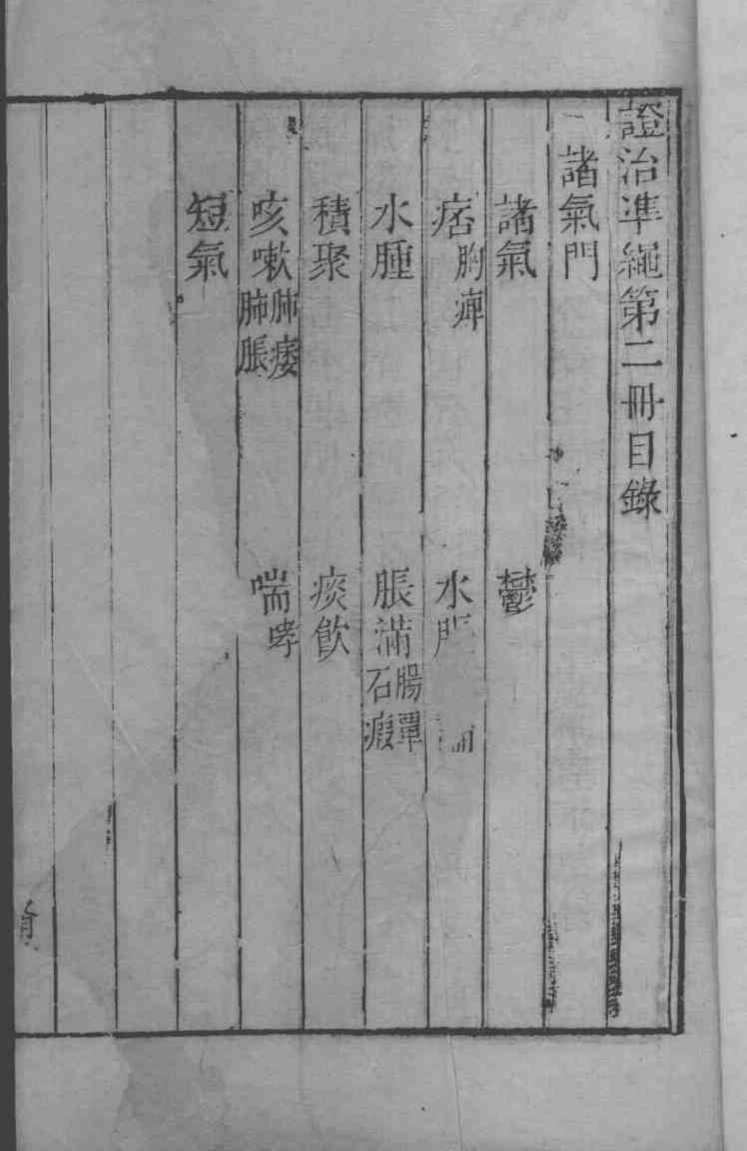 證治準繩第二冊目錄
諸氣門
諸氣 鬱
痞胸痺 水
水腫 脹滿腸覃石瘕
積聚 痰飲
咳嗽肺痿肺脹 喘哮
短氣